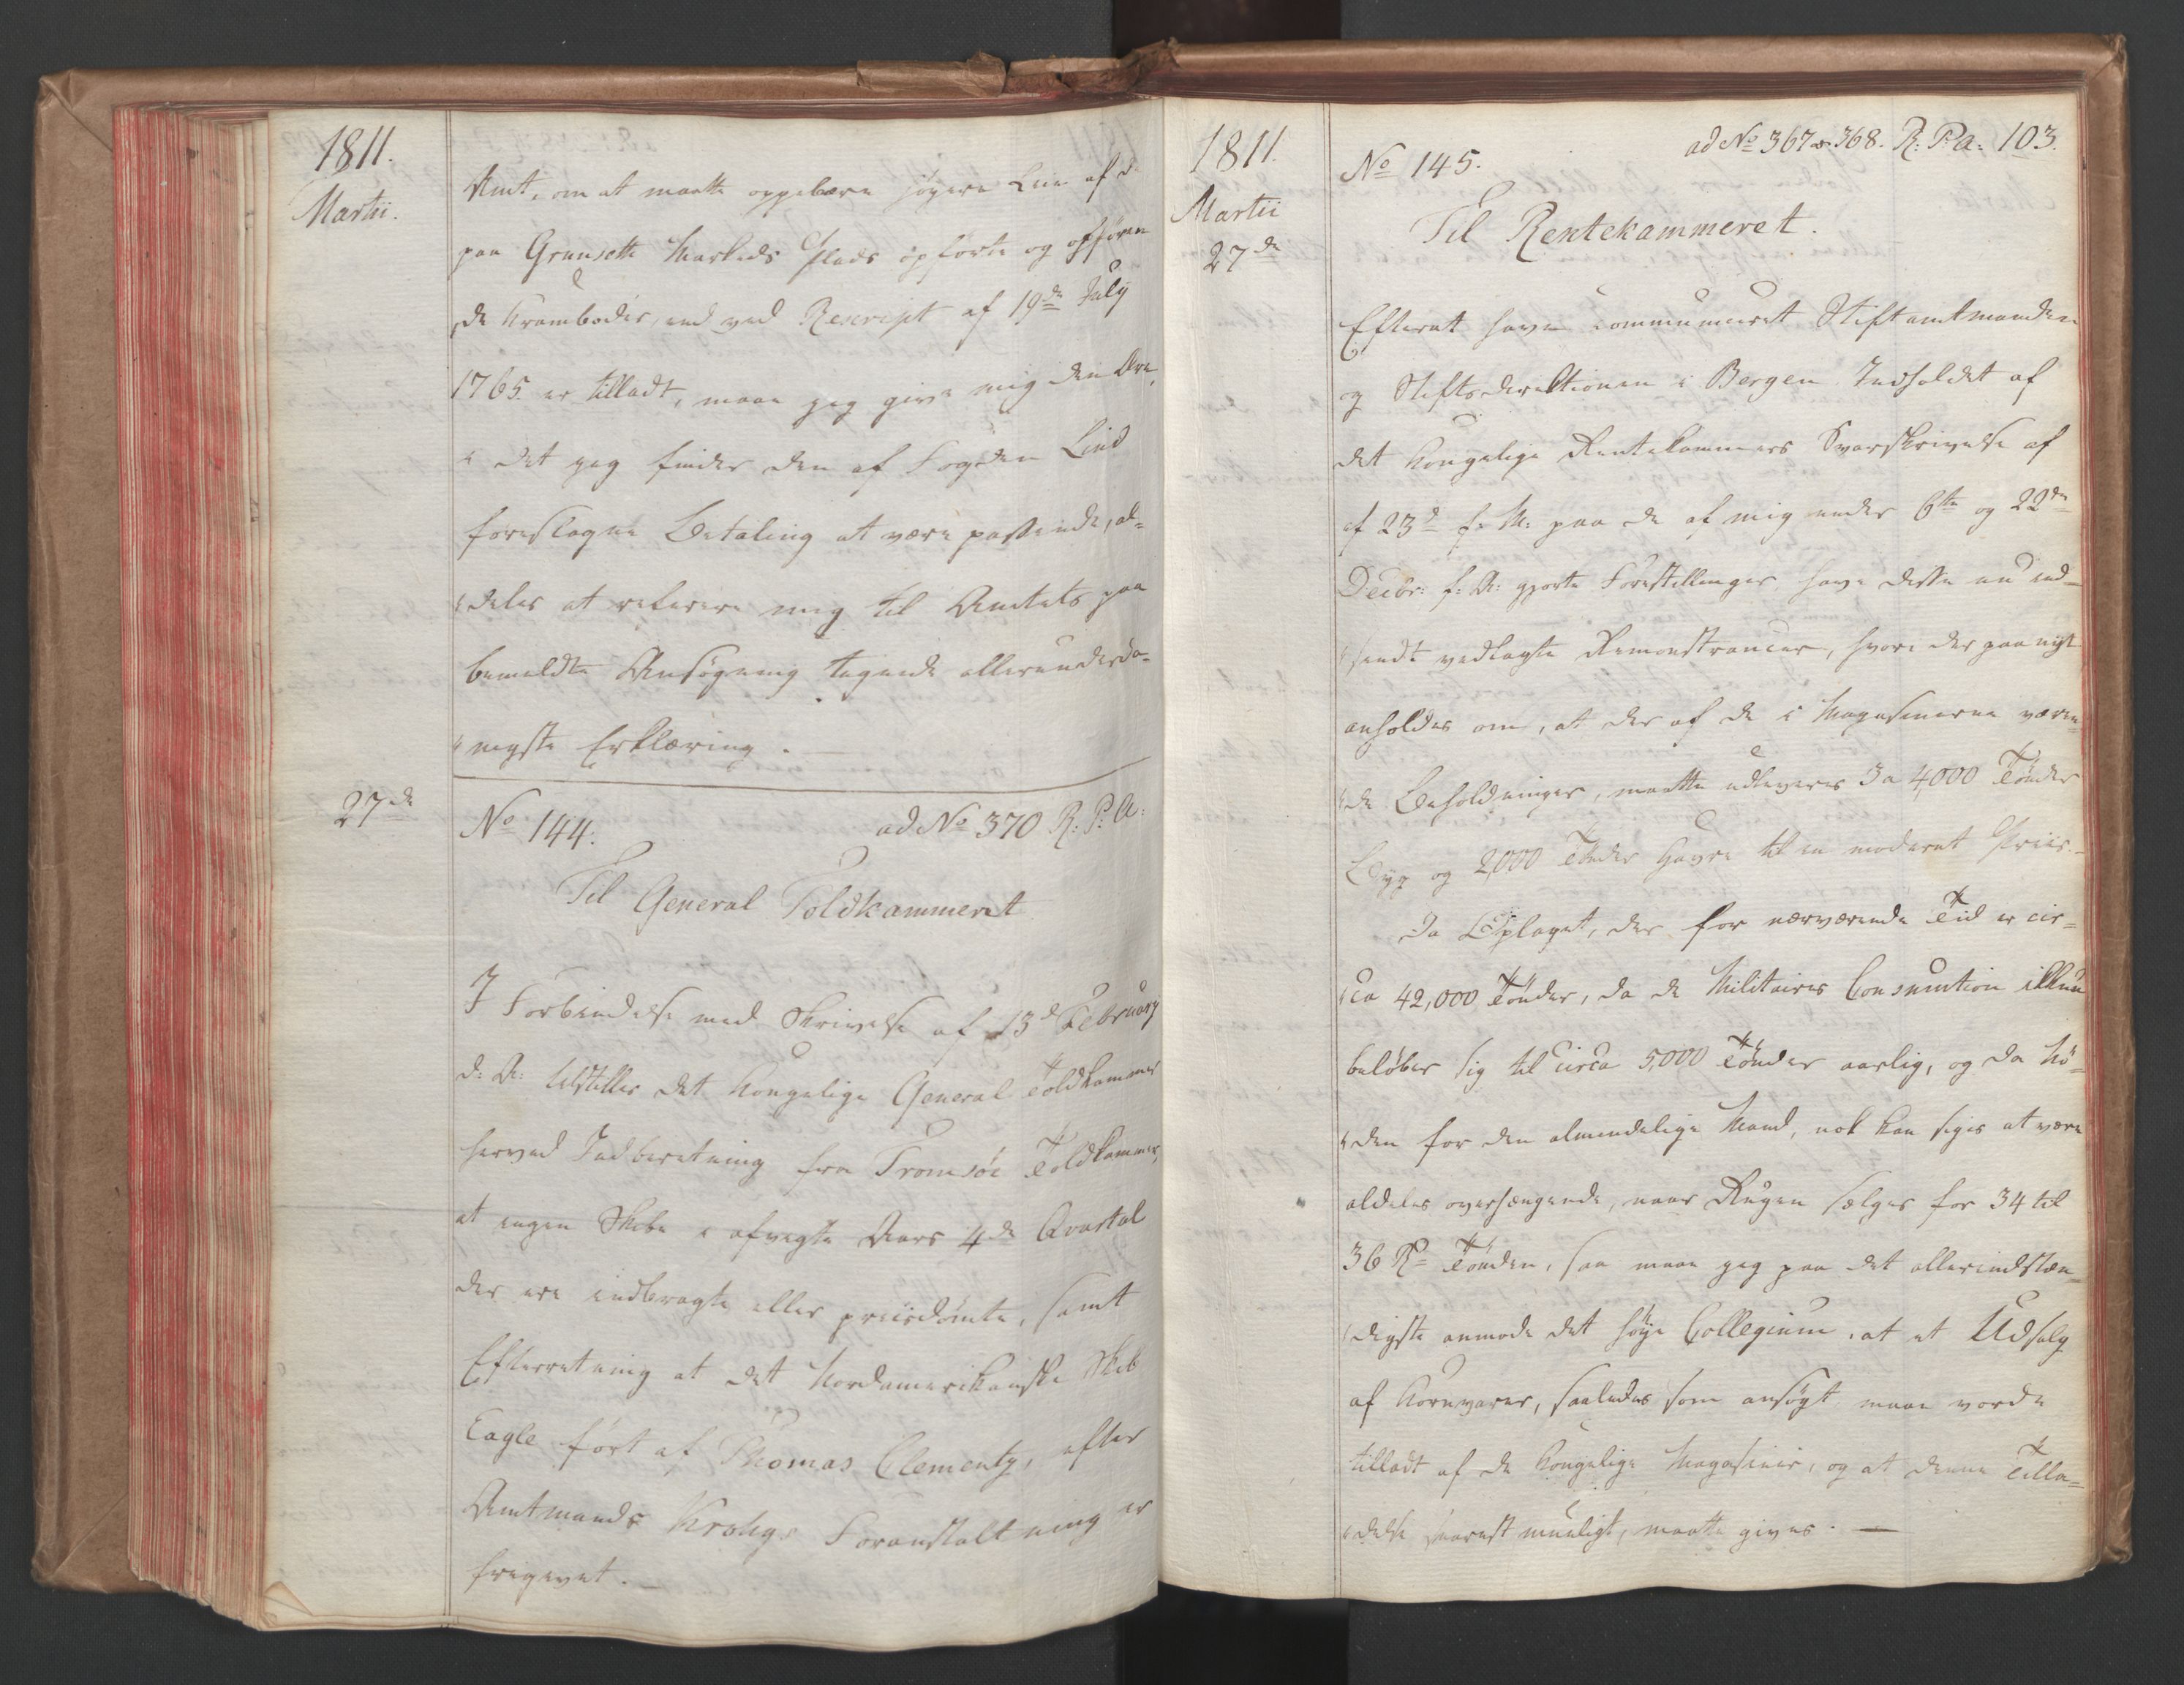 1811.
Martii.
Amt, om at maatte oppebære høyere Leie af d.
paa Grunsett Markeds Plads opførte og opføren
de Kramboder, end ved Rescript af 19de July
1765 er tilladt, maae jeg give mig den Ære,
i det jeg finder den af Fogden Lind
foreslagne Betaling at være passende, al=
deles at referere mig til Amtets paa
bemeldte Ansøgning tegnede allerunderda=
nigste Erklæring. —
27de
No 144.
ad No 370 R: P: A:
Til General Toldkammeret
I Forbindelse med Skrivelse af 13d February
d: A: tilstilles det kongelige General Toldkammer
herved Indberetning fra Tromsöe Toldkammer,
at ingen Skibe i afvigte Aars 4de Qvartal
der ere indbragte eller priisdömte, samt
Efterretning at det Nordamerikanske Skib
Eagle fört af Thomas Clementz, efter
Amtmand Krohgs Foranstaltning er
frigivet. —
1811.
Martii
27de
No 145.
ad No 367 & 368. R: P: A: 103.
Til Rentekammeret.
Efterat have communiceret Stiftamtmanden
og Stiftsdirektionen i Bergen Indholdet af
det kongelige Rentekammers Svarskrivelse af
af 23d f: M: paa de af mig under 6te og 22de
Decbr: f: A: gjorte Forestillinger have disse nu ind=
sendt vedlagte Remonstrancer, hvori der paa nyt
anholdes om, at der af de i Magasinerne væren=
de Beholdninger, maatte udleveres 3 a 4,000 Tönder
Byg og 2,000 Tönder Havre til en moderat Priis. —
Da Oplaget, der for nærværende Tid er cir=
ca 42,000 Tönder, da de Militaires Consumtion ikkun
belöber sig til circa 5,000 Tönder aarlig, og da Nö=
den for den almindelige Mand, nok kan siges at være
aldeles overhængende, naar Rugen sælges for 34 til
36 Rd Tönden, saa maae jeg paa det allerindstæn=
digste anmode det høye Collegium, at et Udsalg
af Kornvarer, saaledes som ansøgt maae vorde
tilladt af de kongelige Magasiner, og at denne Tilla=
delse snarest mueligt, maatte gives. —